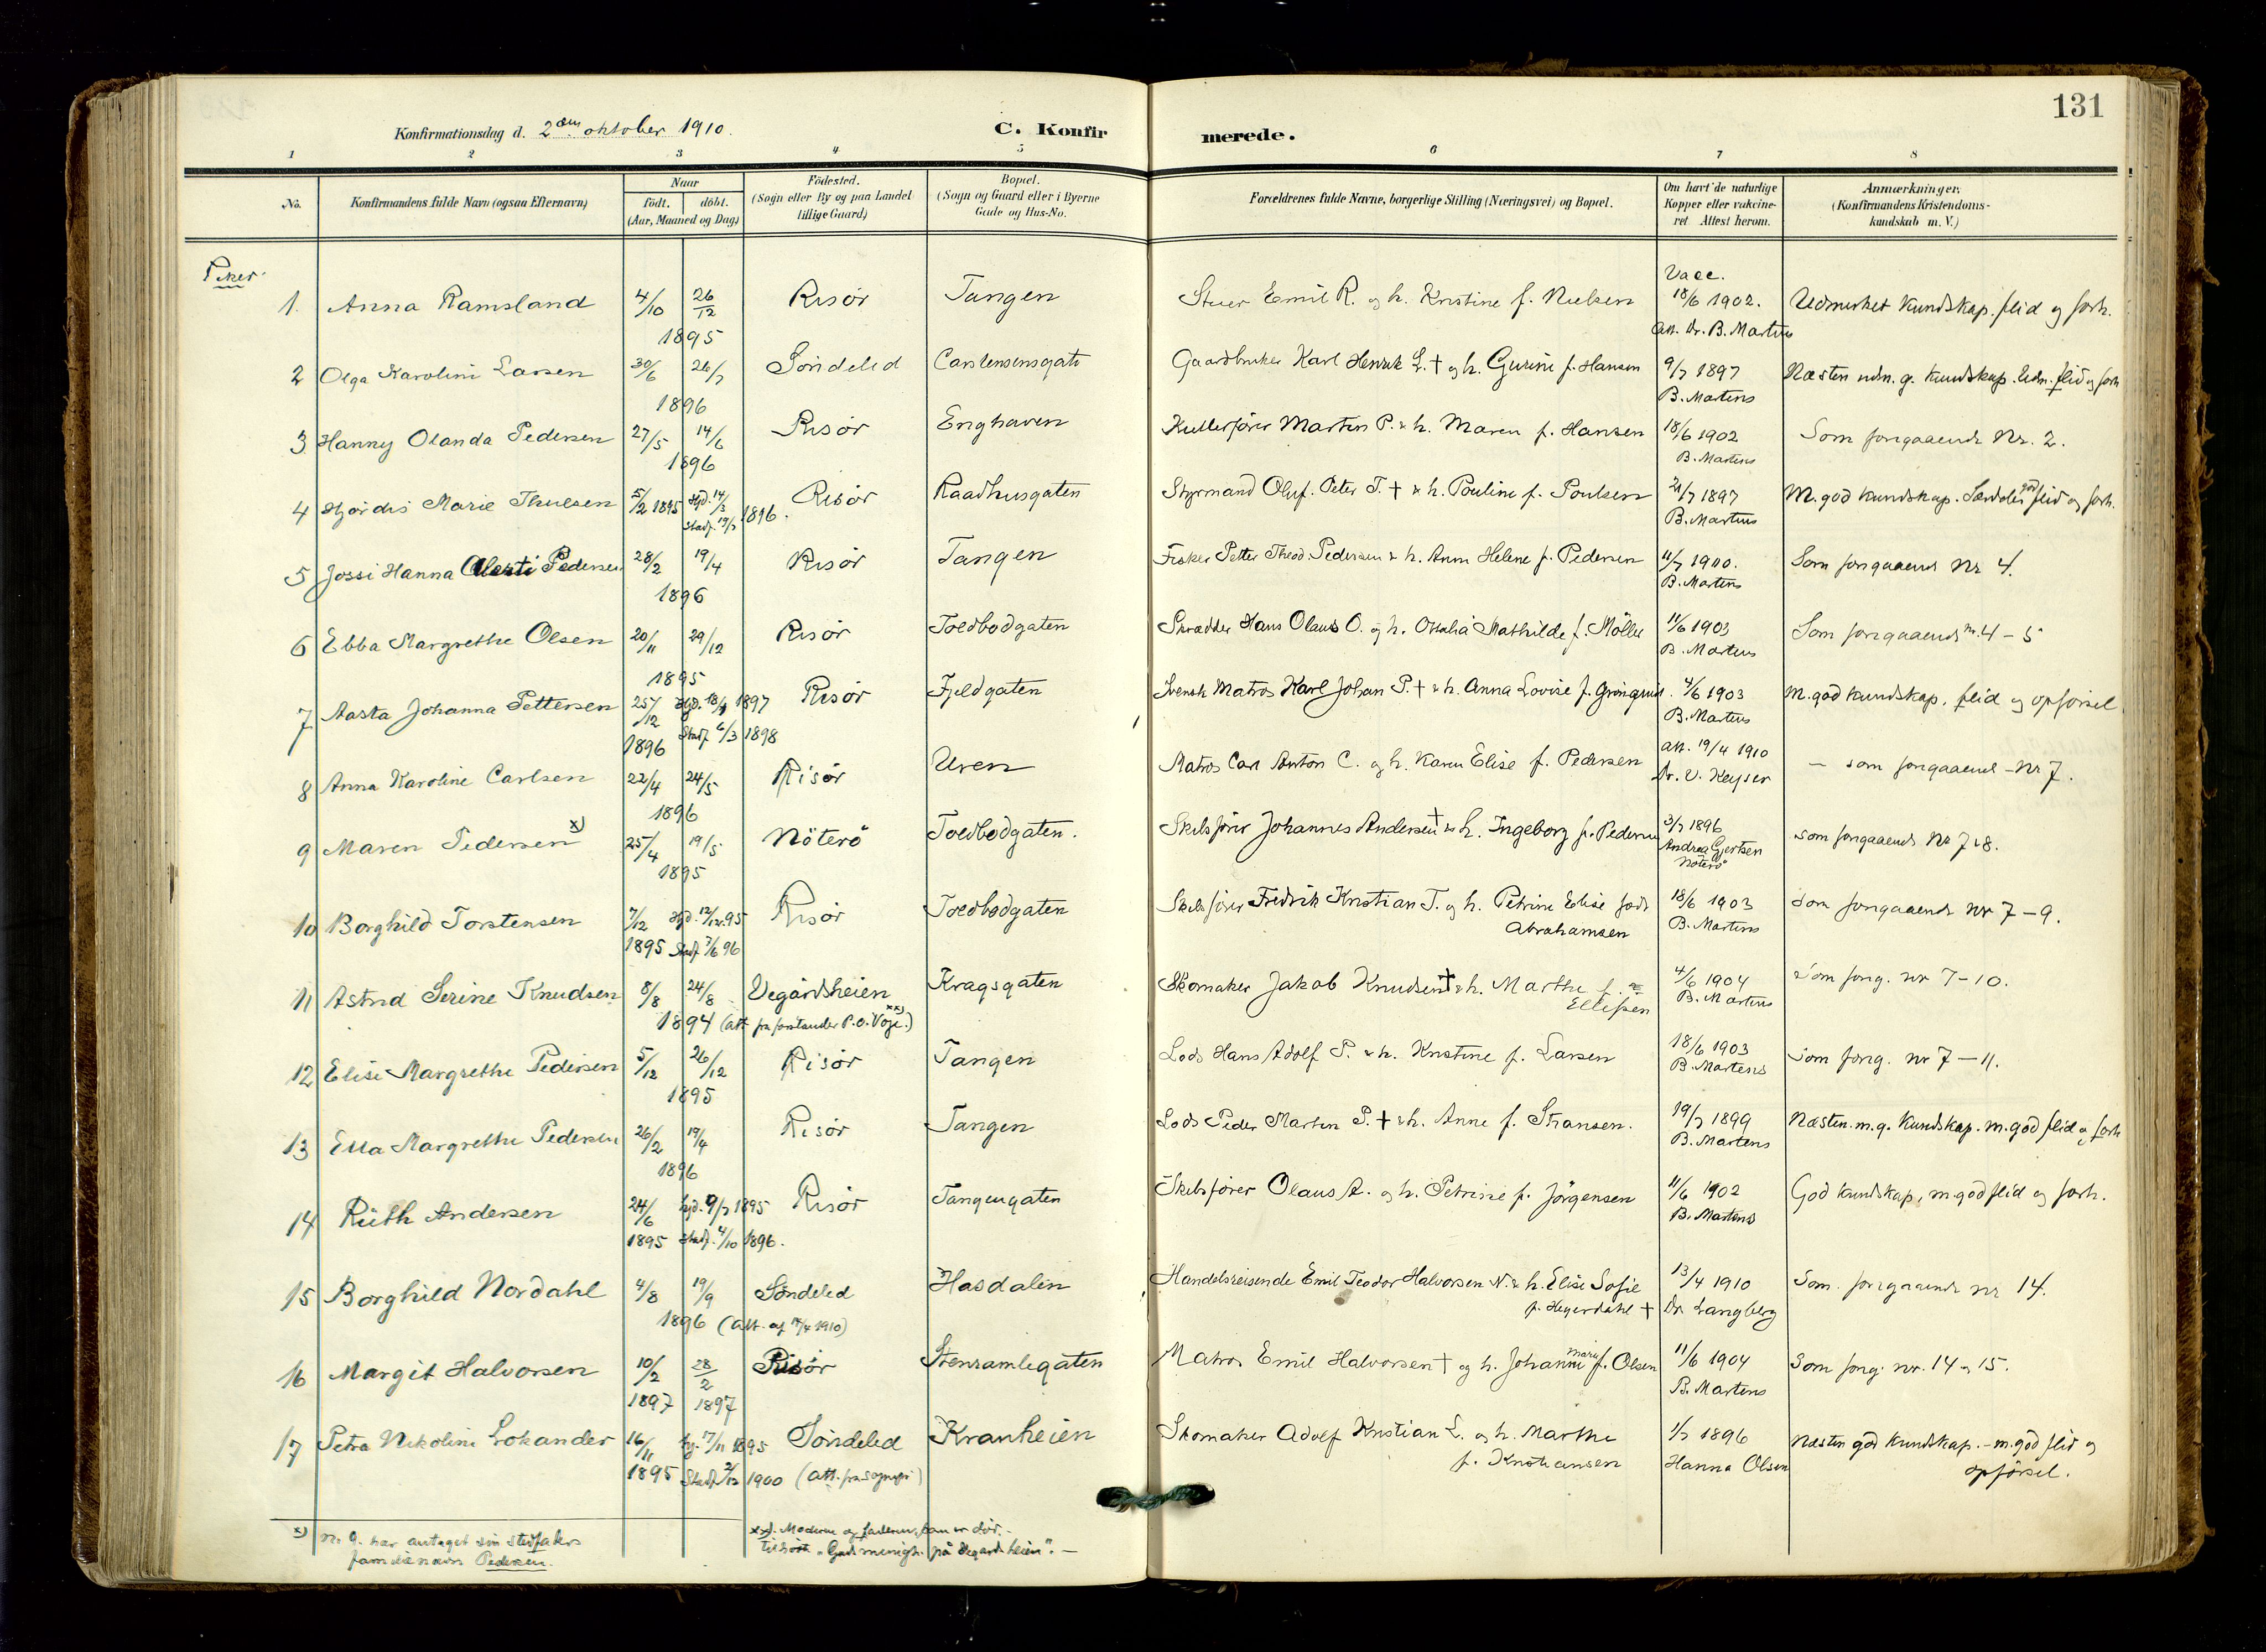 131
Konfirmationsdag d. 2den oktober 1910.
C. Konfirmerede.
1 2 3 4 5 6 7 8
No.
Konfirmandens fulde Navn (ogsaa Efternavn)
Naar
födt. döbt.
(Aar, Maaned og Dag)
Födested.
(Sogn eller By og paa Landet
tillige Gaard)
Bopæl.
(Sogn og Gaard eller i Byerne
Gade og Hus-No.
Forældrenes fulde Navne, borgerlige Stilling (Næringsvei) og Bopæl.
Om havt de naturlige
Kopper eller vakcine-
ret. Attest herom.
Anmærkninger.
(Konfirmandens Kristendoms-
kundskab m. V.)
Piker.
1. Anna Ramsland 4/10 26/12 1895 Risör Tangen Stuer Emil R. og h. Kristine f. Nielsen Vacc. 18/6 1902. Att. Dr. B. Martens Udmerket kundskap. flid og forh.
2 Olga Karolini Larsen 30/6 26/7 1896 Söndeled Carstensensgate Gaardbruker Karl Henrik L. † og h. Gurine f. Hansen 9/7 1897 B. Martens Næsten udm. g. kundskap. Udm. flid og forh
3 Hanny Olanda Pedersen 27/5 14/6 1896 Risör Enghaven Kutterförer Martin P. & h. Maren f. Hansen 18/6 1902 B. Martens Som forrgaaende Nr. 2.
4 Hjördis Marie Thuesen 5/2 1895 Hjd. 14/3 Stadf. 19/7 1896. Risör Raadhusgaten Styrmand Oluf Peter T. † & h. Pouline f. Poulsen 21/7 1897 B. Martens M. god kundskap. Særdeles god flid og forh.
5 Jossi Hanna Pedersen 28/2 19/4 1896 Risör Tangen Fisker Petter Theod. Pedersen & h. Anne Helene f. Pedersen 11/7 1900. B. Martens Som forrgaaend Nr 4.
6 Ebba Margrethe Olsen 20/11 29/12 1895 Risör Toldbodgaten Skrædder Hans Olaus O. og h. Othalia Mathilde f. Möller 11/6 1903 B. Martens Som forrgaaende nr. 4 - 5
7 Aasta Johanna Pettersen 25/12 1896 Hjd. 18/4 1897 Stadf. 6/3 1898 Risör Fjeldgaten Svensk Matros Karl Johan P. † & h. Anna Lovise f. Grönquist. 4/6 1903 B. Martens M. god kundskap, flid og opförsel
8 Anna Karoline Carlsen 22/4 24/5 1896 Risör Uren Matros Carl Anton C. og h. Karen Elise f. Pedersen Att. 19/4 1910 Dr. V. Keyser - som forrgaaend - Nr 7.
9 Maren Pedersen x) 25/4 19/5 1895 Nöterö Toldbodgaten. Skibsförer Johannes Andersen † & h. Ingeborg f. Pedersen 3/7 1896 Andrea Gjertsen Nöterö Som forrgaaende Nr 7 & 8.
10 Borghild Torstensen 7/12 1895 Hjd. 12/12 95 Stadf. 7/6 96 Risör Toldbodgaten Skibsförer Fredrik Kristian T. og h. Petrine Elise föd Abrahamsen 18/6 1903 B. Martens Som forrgaaende nr 7 - 9.
11 Astrid Serine Knudsen 8/8 24/8 1894 Vegårdsheien (att. fra forstander P.O. Voje.) xx) Kragsgaten Skomaker Jakob Knudsen † & h. Marthe f. Ellefsen 4/6 1904 B. Martens Som forrg. nr 7-10.
12 Elise Margrethe Pedersen 5/12 26/12 1895 Risör Tangen Lods Hans Adolf P. & h. Kristine f. Larsen 18/6 1903 B. Martens Som forrg. nr 7 - 11.
13 Ella Margrethe Pedersen 26/2 19/4 1896 Risör Tangen Lods Peder Martin P. † & h. Anne f. Stransen. 19/7 1899 B. Martens Næsten m. g. kundskap. m. god flid og forh
14 Ruth Andersen 24/6 1895 hjd. 9/7 1895 Stadf. 4/10 1896. Risör Tangengaten Skibsförer Olaus A. og h. Petrine f. Jörgensen 11/6 1902 B. Martens God kundskap, m. god flid og forh.
15 Borghild Nordahl 4/8 19/9 1896 Söndeled (Att. af 14/4 1910) Hasdalen Handelsreisende Emil Teodor Halvorsen N. & h. Elise Sofie f. Heyerdahl † 13/4 1910 Dr. Langberg Som forrgaaende nr 14.
16 Margit Halvorsen 10/2 1897 28/2 1897 Risör Stensamlegaten Matros Emil Halvorsen † og h. Johanne Marie f. Olsen 11/6 1904 B. Martens Som forrg. nr. 14 & 15.
17 Petra Nikoline Lokander 16/11 1895 hj. 17/11 1895 Stadf. 2/12 1900 Söndeled (Att. fra sognepr.) Kranheien Skomaker Adolf Kristian L. og h. Marthe f. Kristiansen 1/7 1896 Hanna Olsen Næsten god kundskap. - m. god flid og opförsel.
x) nr. 9 har antaget sin stedfaders
familienavn Pedersen.
xx). Moderen og faderen, som er död,
tilhörte "Guds menigh. på Vegardsheien". -